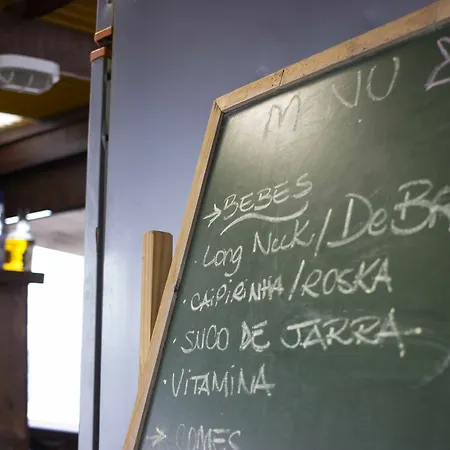 MENU
→ BEBES
· Long Neck / DeBA
· CAIPIRINHA / ROSKA
· SUCO DE JARRA
· VITAMINA
→ COMES